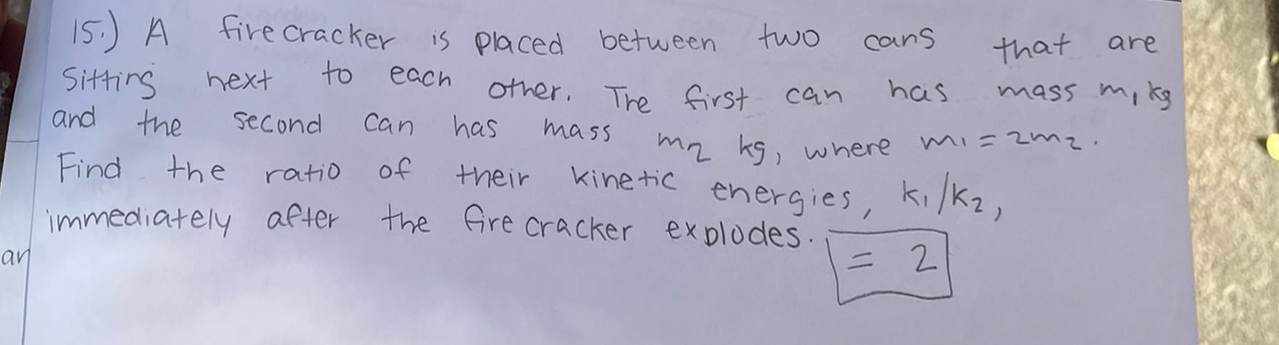 15.) A firecracker is placed between two cans that are
sitting next to each other. The first can has mass m₁ kg
and the second can has mass m₂ kg, where m₁ = 2m₂.
Find the ratio of their kinetic energies, k₁/k₂,
immediately after the firecracker explodes.
= 2
an